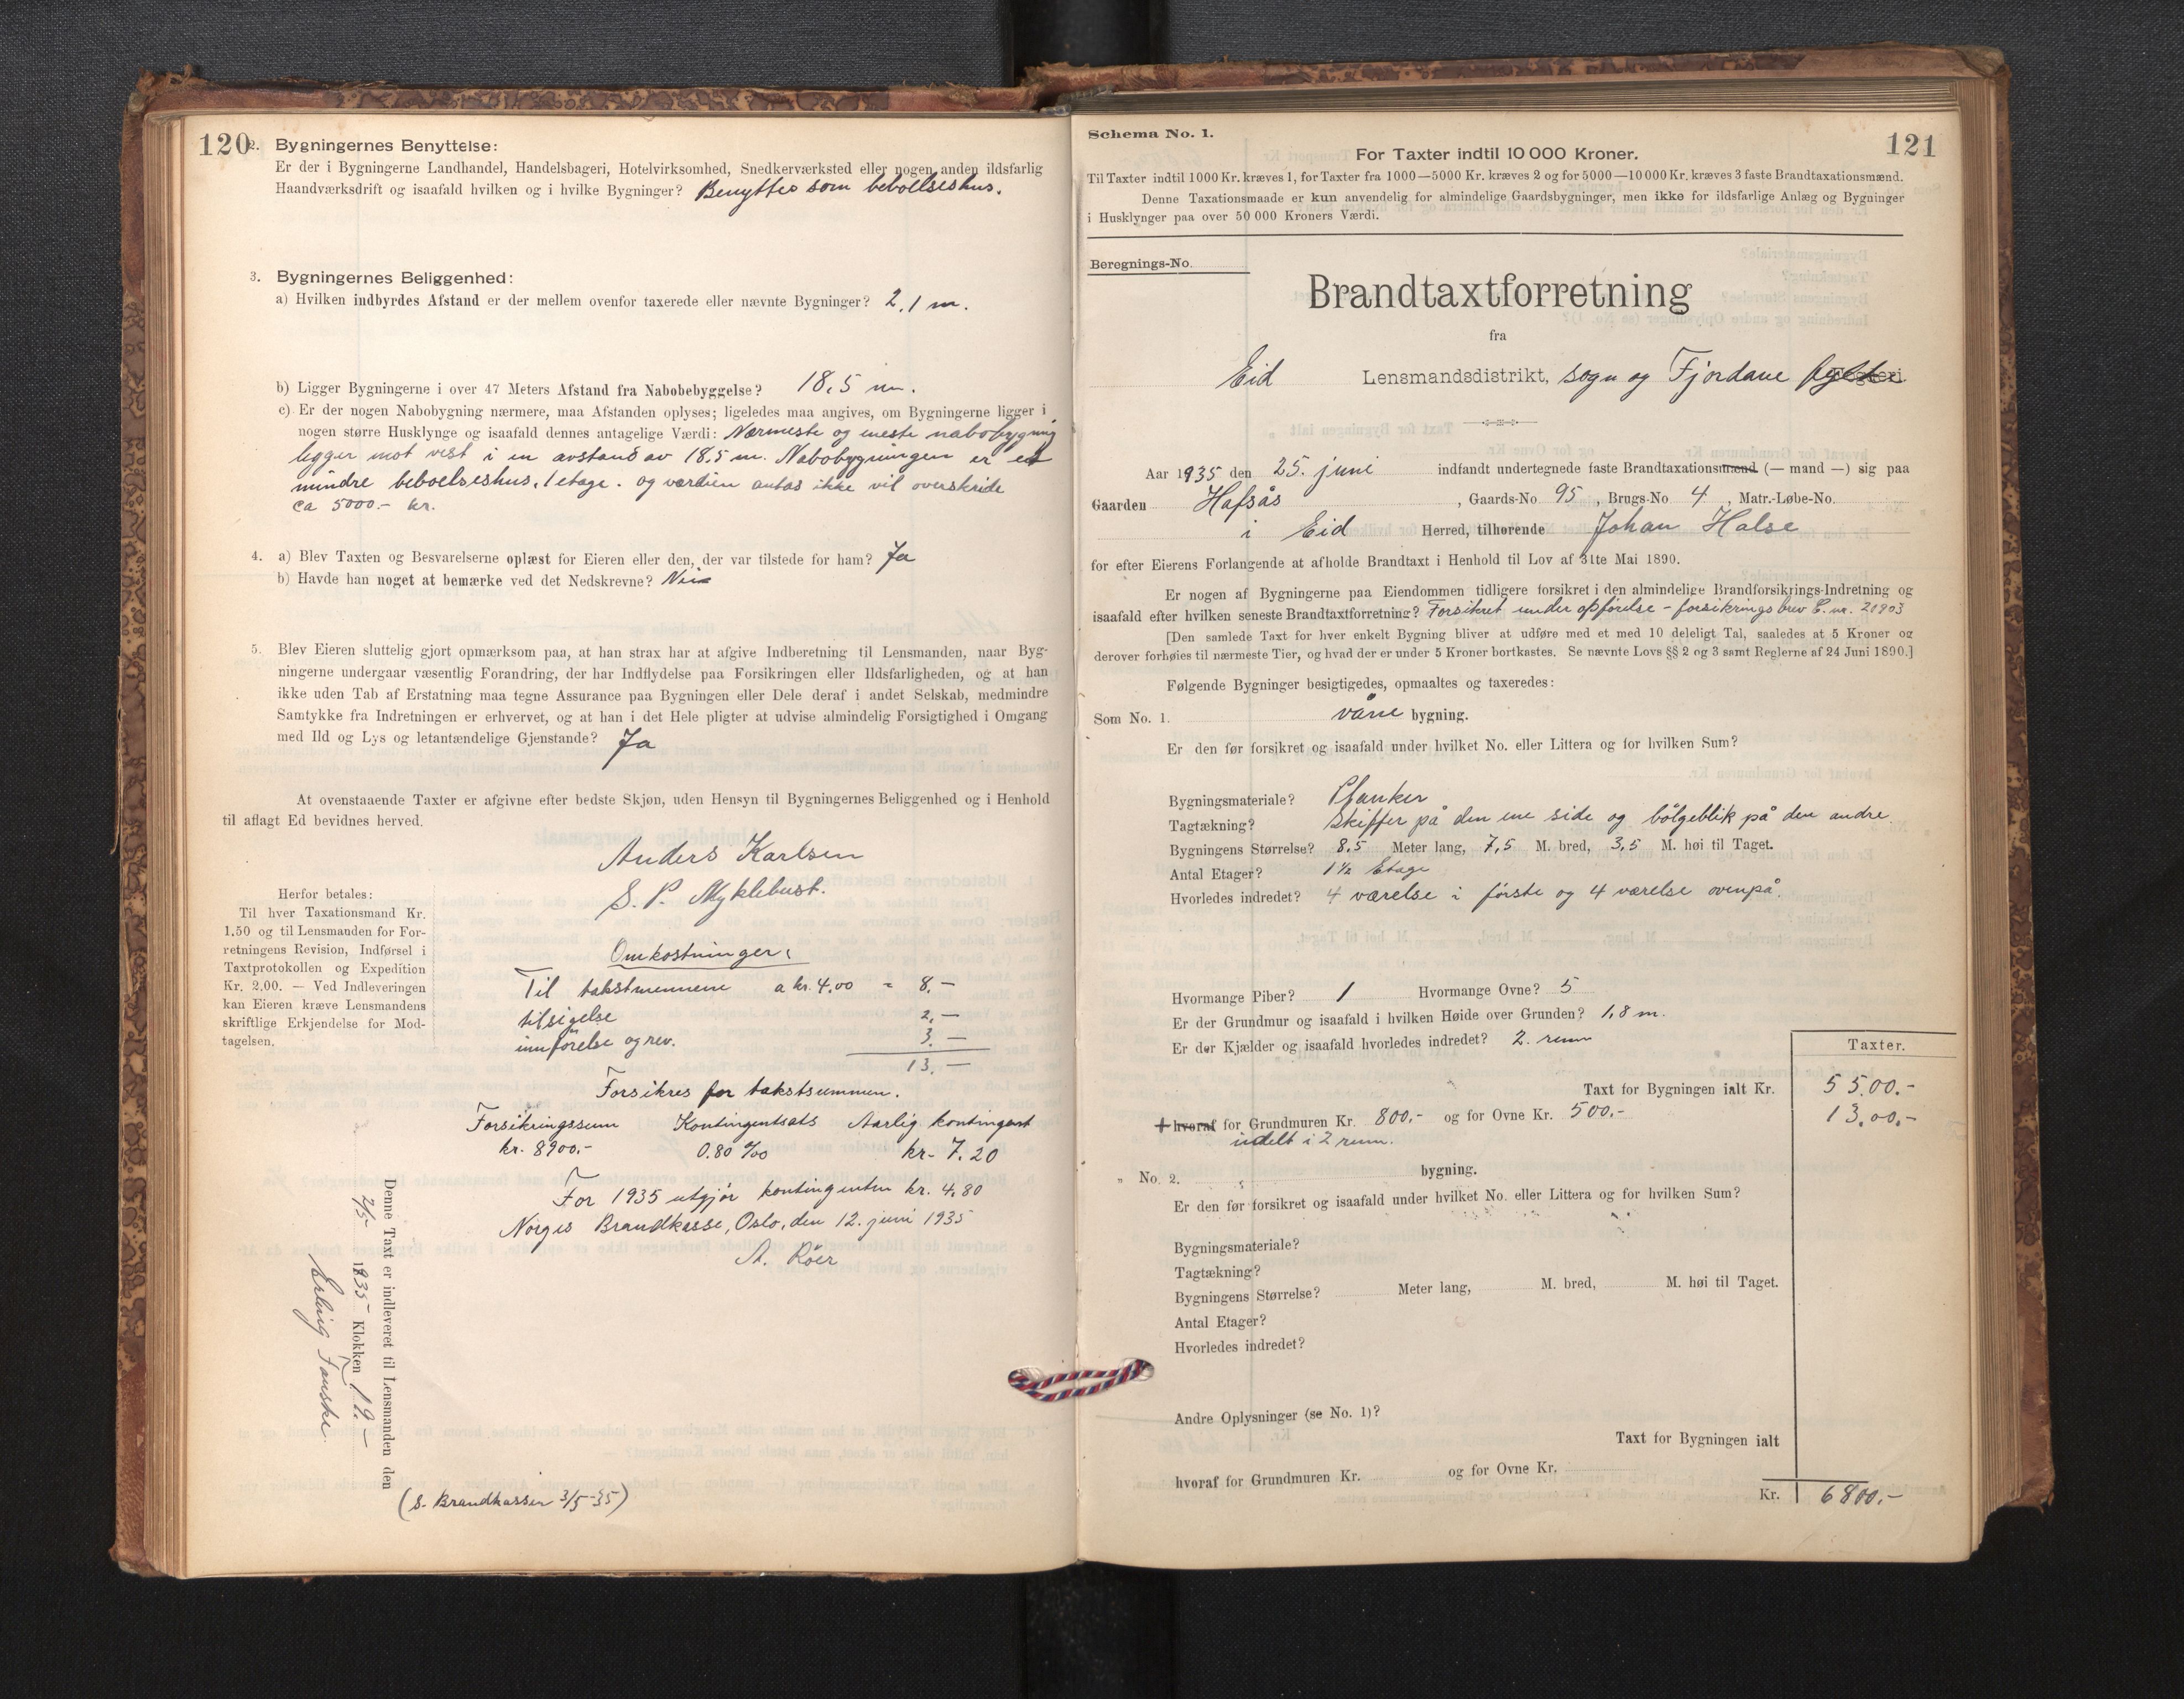 120
2. Bygningernes Benyttelse:
Er der i Bygningerne Landhandel, Handelsbageri, Hotelvirksomhed, Snedkerværksted eller nogen anden ildsfarlig
Haandværksdrift og isaafald hvilken og i hvilke Bygninger? Benyttes som beboelseshus.
3. Bygningernes Beliggenhed:
a) Hvilken indbyrdes Afstand er der mellem ovenfor taxerede eller nævnte Bygninger? 2,1 m.
b) Ligger Bygningerne i over 47 Meters Afstand fra Nabobebyggelse? 18,5 m.
c) Er der nogen Nabobygning nærmere, maa Afstanden oplyses; ligeledes maa angives, om Bygningerne ligger i
nogen større Husklynge og isaafald dennes antagelige Værdi: Nærmeste og eneste nabobygning
ligger mot vest i en avstand av 18,5 m. Nabobygningen er et
mindre beboelseshus, 1 etage. og værdien antas ikke vil overskride
ca 5000.- kr.
4. a) Blev Taxten og Besvarelserne oplæst for Eieren eller den, der var tilstede for ham? Ja
b) Havde han noget at bemærke ved det Nedskrevne? Nei
5. Blev Eieren sluttelig gjort opmærksom paa, at han strax har at afgive Indberetning til Lensmanden, naar Byg-
ningerne undergaar væsentlig Forandring, der har Indflydelse paa Forsikringen eller Ildsfarligheden, og at han
ikke uden Tab af Erstatning maa tegne Assurance paa Bygningen eller Dele deraf i andet Selskab, medmindre
Samtykke fra Indretningen er erhvervet, og at han i det Hele pligter at udvise almindelig Forsigtighed i Omgang
med Ild og Lys og letantændelige Gjenstande? Ja
At ovenstaaende Taxter er afgivne efter bedste Skjøn, uden Hensyn til Bygningernes Beliggenhed og i Henhold
til aflagt Ed bevidnes herved.
Anders Karlsen
S. P. Myklebust.
Herfor betales:
Til hver Taxationsmand Kr.
1.50 og til Lensmanden for For-
retningens Revision, Indførsel i
Taxtprotokollen og Expedition
Kr. 2.00. — Ved Indleveringen
kan Eieren kræve Lensmandens
skriftlige Erkjendelse for Mod-
tagelsen.
Omkostninger:
Til takstmennene a kr. 4,00 = 8.-
tilsigelse 2,-
innförelse og rev. 3.-
13.-
Forsikres for takstsummen.
Forsikringssum Kontingentsats Aarlig kontingent
kr. 8900.- 0.80 ‰ kr. 7.20
For 1935 utgjör kontingenten kr. 4.80
Norges Brandkasse, Oslo, den 12. juni 1935
A. Röer
Denne Taxt er indleveret til Lensmanden den
2/5 1935 Klokken 19.-
Erling Fauske.
(s. Brandkassen 3/5-35)
Schema No. 1.
121
For Taxter indtil 10 000 Kroner.
Til Taxter indtil 1000 Kr. kræves 1, for Taxter fra 1000—5000 Kr. kræves 2 og for 5000—10 000 Kr. kræves 3 faste Brandtaxationsmænd.
Denne Taxationsmaade er kun anvendelig for almindelige Gaardsbygninger, men ikke for ildsfarlige Anlæg og Bygninger
i Husklynger paa over 50 000 Kroners Værdi.
Beregnings-No.
Brandtaxtforretning
fra
Eid Lensmandsdistrikt, sogn og Fjordane fylke Fogderi.
Aar 1935 den 25. juni indfandt undertegnede faste Brandtaxationsmænd (— mand —) sig paa
Gaarden Hafsås, Gaards-No 95, Brugs-No 4, Matr.-Løbe-No.
i Eid Herred, tilhørende Johan Halse
for efter Eierens Forlangende at afholde Brandtaxt i Henhold til Lov af 31te Mai 1890.
Er nogen af Bygningerne paa Eiendommen tidligere forsikret i den almindelige Brandforsikrings-Indretning og
isaafald efter hvilken seneste Brandtaxtforretning? Forsikret under opförelse - forsikringsbrev C. nr. 21903
[Den samlede Taxt for hver enkelt Bygning bliver at udføre med et med 10 deleligt Tal, saaledes at 5 Kroner og
derover forhøies til nærmeste Tier, og hvad der er under 5 Kroner bortkastes. Se nævnte Lovs §§ 2 og 3 samt Reglerne af 24 Juni 1890.]
Følgende Bygninger besigtigedes, opmaaltes og taxeredes:
Som No. 1. våne bygning.
Er den før forsikret og isaafald under hvilket No. eller Littera og for hvilken Sum?
Bygningsmateriale? Planker
Tagtækning? Skiffer på den ene side og bölgeblik på den andre.
Bygningens Størrelse? 8,5 Meter lang, 7,5 M. bred, 3,5 M. høi til Taget.
Antal Etager? 1½ Etage
Hvorledes indredet? 4 værelse i förste og 4 værelse ovenpå.
Hvormange Piber? 1 Hvormange Ovne? 5
Er der Grundmur og isaafald i hvilken Høide over Grunden? 1,8 m.
Er der Kjælder og isaafald hvorledes indredet? 2. rum
Taxter.
Taxt for Bygningen ialt Kr. 5500.-
+ hvoraf for Grundmuren Kr. 800.- og for Ovne Kr. 500.- 13,00.-
indelt i 2 rum.
„ No. 2. bygning.
Er den før forsikret og isaafald under hvilket No. eller Littera og for hvilken Sum?
Bygningsmateriale?
Tagtækning?
Bygningens Størrelse? Meter lang, M. bred, M. høi til Taget.
Antal Etager?
Hvorledes indredet?
Andre Oplysninger (se No. 1)?
Taxt for Bygningen ialt
hvoraf for Grundmuren Kr. og for Ovne Kr.
Kr. 6800.-